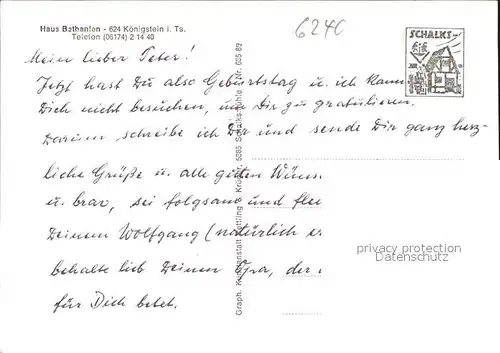 Haus Bethanien - 624 Königstein i. Ts.
Telefon (06174) 2 14 40
6240
SCHALKS
Mein lieber Peter!
Jetzt hast Du also Geburtstag u. ich kann
Dich nicht besuchen, um Dir zu gratulieren.
Darum schreibe ich Dir und sende Dir ganz herz-
liche Grüße u. alle guten Wüns
u. brav, sei folgsam und flei
Deinem Wolfgang (natürlich
behalte lieb Deinen Opa, der
für Dich betet.
Graph. Kunstanstalt
privacy protection
Datenschutz